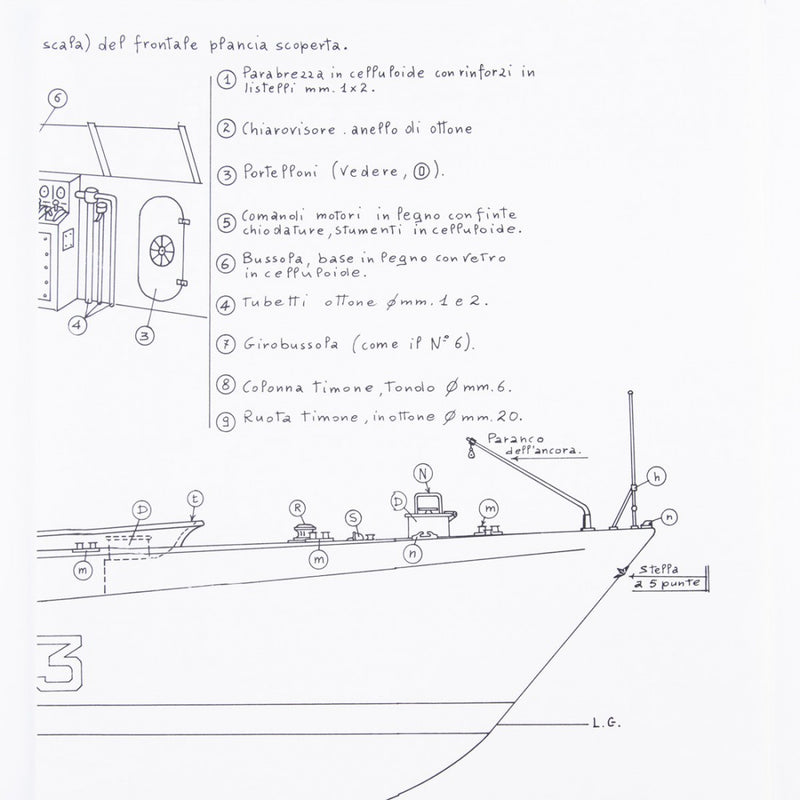 scala) del frontale plancia scoperta.
1 Parabrezza in celluloide con rinforzi in
listelli mm. 1x2.
2 Chiarovisore . anello di ottone
3 Portelloni (Vedere, D).
5 Comandi motori in legno con finte
chiodature, stumenti in celluloide.
6 Bussola, base in legno con vetro
in celluloide.
4 Tubetti ottone ømm. 1 e 2.
7 Girobussola (come il N° 6).
8 Colonna timone, Tondo Ø mm. 6.
9 Ruota timone, in ottone Ø mm. 20.
6
4
3
Paranco
dell'ancora.
N
h
D
t
R
S
D
m
n
m
m
n
stella
a 5 punte
3
L.G.